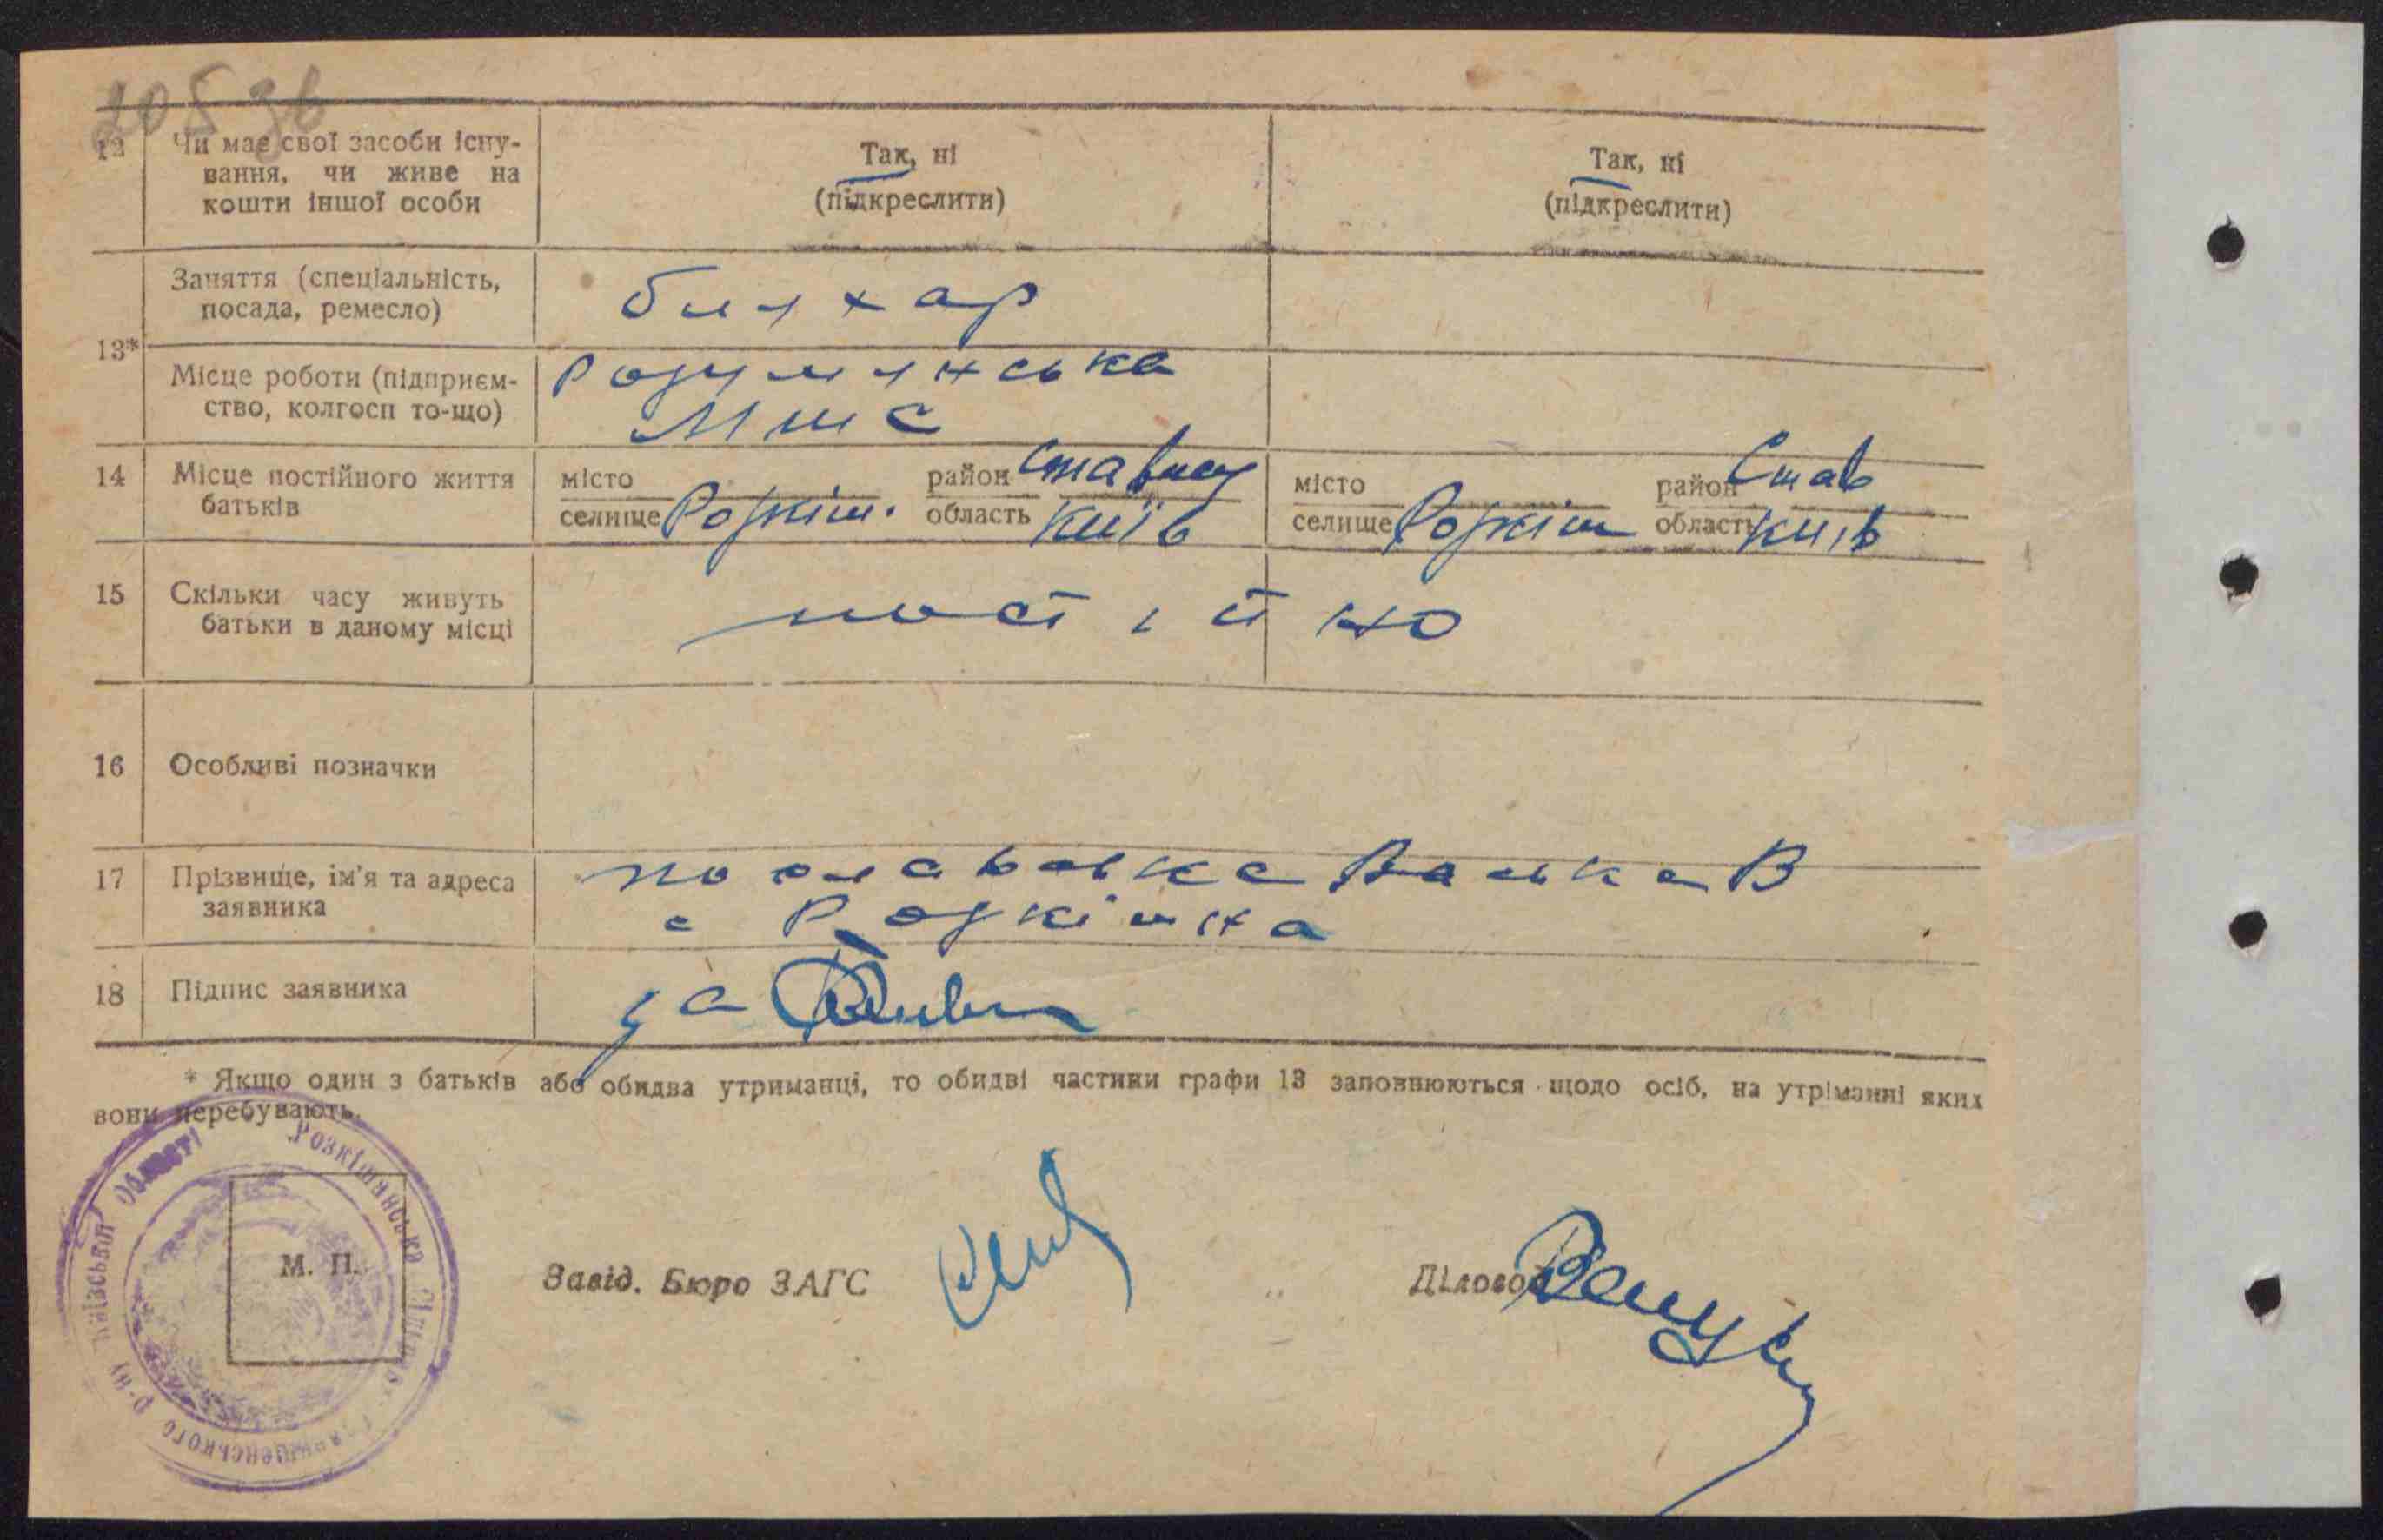 205 зв
12 Чи має свої засоби існу-
вання, чи живе на
кошти іншої особи
Так, ні
(підкреслити)
Так, ні
(підкреслити)
Заняття (спеціальність,
посада, ремесло)
13*
Місце роботи (підприєм-
ство, колгосп то-що)
14 Місце постійного життя
батьків
місто
селище Розкіш.
район
область Київ
місто
селище Розкіш
район Став
область Київ
15 Скільки часу живуть
батьки в даному місці
постійно
16 Особливі позначки
17 Прізвище, ім'я та адреса
заявника
с Розкішна
18 Підпис заявника
за
* Якщо один з батьків або обидва утриманці, то обидві частини графи 13 заповнюються щодо осіб, на утріманні яких
вони перебувають.
Розкішнянська Сільрада
р-ну Київської Області
М. П.
Завід. Бюро ЗАГС
Діловод